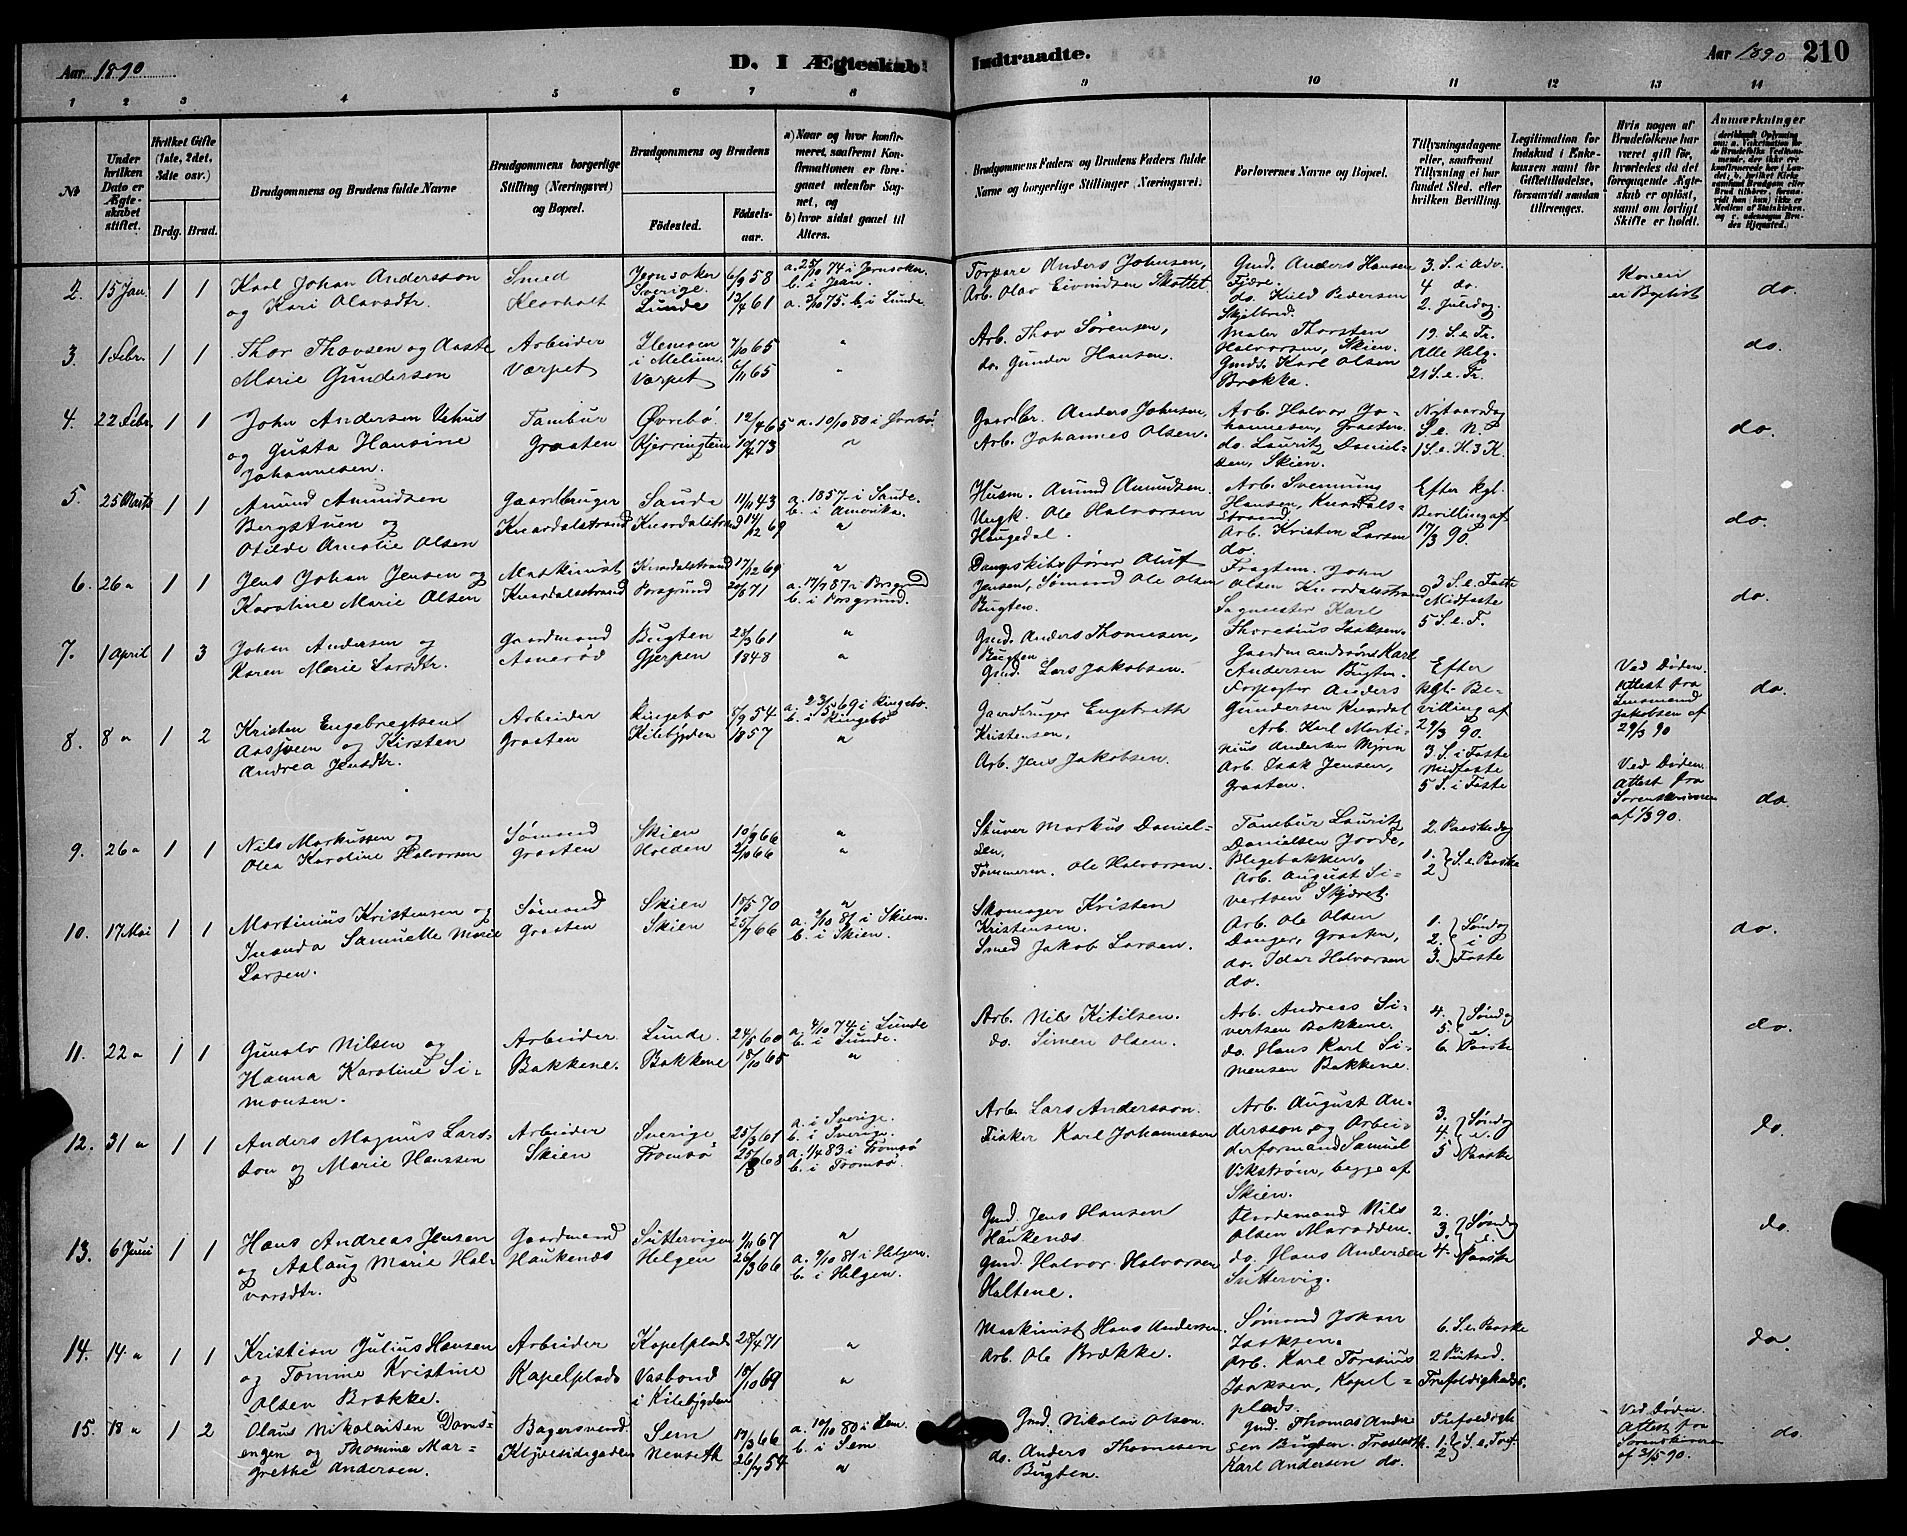 Aar 1890
D. I Ægteskab
Indtraadte.
Aar 1890
210
1 2 3 4 5 6 7 8 9 10 11 12 13 14
No
Under hvilken Dato er Ægteskabet stiftet.
Hvilket Gifte (1ste, 2det, 3die osv.)
Brdg. Brud.
Brudgommens og Brudens fulde Navne
Brudgommens borgerlige Stilling (Næringsvei) og Bopæl.
Brudgommens og Brudens
Fødested.
Fødselsaar.
a) Naar og hvor konfirmeret, saafremt Konfirmationen er foregaaet udenfor Sognet, og
b) hvor sidst gaaet til Alters.
Brudgommens Faders og Brudens Faders fulde Navne og borgerlige Stillinger (Næringsvei.)
Forlovernes Navne og Bopæl.
Tillysningsdagene eller, saafremt Tillysning ei har fundet Sted, efter hvilken Bevilling.
Legitimation for Indskud i Enkekassen samt for Giftetilladelse, forsaavidt saadan tiltrænges.
Hvis nogen af Brudefolkene har været gift før, hvorledes da det foregaaende Ægteskab er opløst, samt om lovligt Skifte er holdt.
Anmærkninger
2. 15 Jan. 1 1
Karl Johan Andersson
og Kari Olavsdtr.
Smed
Klovholt
Sverige
Lunde
6/9 58
13/4 61
a. 3/10 75. b. i Lunde
Torpare Anders Johnsen,
Arb. Olav Eivindsen Skottet
Gmd. Anders Hansen
Fjære.
do. Kield Pedersen
Skjelbred.
3. S. i Adv.
4 do.
2. Juledag
Konen
er Baptist
do.
3. 1 Febr. 1 1
Thor Thorsen og Aaste
Marie Gundersen
Arbeider
Værpet
i Melum.
Værpet
7/10 65
6/11 65
"
"
Arb. Thor Sørensen,
do. Gunder Hansen.
Maler Thorsten
Halvorsen, Skien.
Gmds. Karl Olsen
Brekka.
19. S. e Tr.
Alle Helg.
21 S. e. Tr.
do.
4. 22 Febr. 1 1
John Andersen Uhus
og Gusta Hansine
Johannesen.
Tambur
Graaten
Øvrebø
Kjerringtein
12/4 65
19/4 73
a. 10/10 80 i Øvrebø
"
Gaardbr. Anders Johnsen,
Arb. Johannes Olsen.
Arb. Halvor Jo-
hannesen, Graaten
do. Lauritz Daniel-
sen, Skien.
Nytaarsdag
S. e. N.
1 S. e. H. 3 K.
do.
5. 25 Marts 1 1
Amund Amundsen
Bergstuen og
Otilde Amalie Olsen
Gaardbruger
Knardalstrand
Saude
Knardalstrand
11/11 43
14/12 69
a. 1857 i Saude.
b. i Amerika.
"
Husm. Amund Amundsen.
Ungk. Ole Halvorsen
Haugedal.
Arb. Svennung
Hansen, Knardals-
strand
Arb. Kristen Larsen
do.
Efter kgl.
Bevilling af
17/3 90.
do.
6. 26 " 1 1
Jens Johan Jensen og
Karoline Marie Olsen
Maskinist
Knardalsstrand
Knardalstrand
Porsgrund
17/12 69
20/6 71
"
a. 17/7 87 i Porsgrund
b. i Porsgrund.
Dampskibsfører Oluf
Jensen, Sømand Ole Olsen
Bugten.
Fragtem. John
Olsen Knardalsstrand
Sagmester Karl
Thoresius Isaksen.
3 S. e. Faste
Midfaste
5 S. e. F.
do.
7. 1 April 1 3
Johan Andersen og
Karen Marie Larsdtr.
Gaardmand
Aanerød
Bugten
Gjerpen
28/3 61
1848
"
"
Gmd. Anders Thomesen,
Bugten
Gmd. Lars Jakobsen.
Gaardmandssøn Karl
Andersen Bugten.
Forpagter Anders
Gundersen Knardal
Efter
kgl. Be-
villing af
29/3 90.
Ved Døden.
Attest fra
Lensmand
Jakobsen af
29/3 90
do.
8. 8 " 1 2
Kristen Engebregtsen
Aasveen og Kirsten
Andrea Jensdtr.
Arbeider
Graaten
Ringebo
Kilebygden
8/9 54
1857
a. 23/5 69 i Ringebo.
b. i Ringebø
"
Gaardbruger Engebreth
Kristensen,
Arb. Jens Jakobsen.
Arb. Karl Marti-
nius Andersen Myren
Arb. Isak Jensen,
Graaten.
3 S. i Faste
Midfaste
5 S. i Faste
Ved Døden.
Attest fra
Sorenskriveren
af 1/3 90.
do.
9. 26 " 1 1
Nils Markussen og
Olea Karoline Halvorsen
Sømand
Graaten
Skien
Holden
10/9 66
2/10 66
"
"
Stuver Markus Daniel-
sen,
Tømmerm. Ole Halvorsen.
Tambur Lauritz
Danielsen Jorde,
Blegebakken.
Arb. August Si-
vertsen Skjæret.
2. Paaskedag
1. } S. e. Paaske
2
10. 17 Mai 1 1
Martinius Kristensen og
Inanda Samuelle Marie
Larsen.
Sømand
Graaten
Skien
Skien
18/5 70
25/7 66
"
a. 2/10 81 i Skien.
b. i Skien.
Skomager Kristen
Kristensen.
Smed Jakob Larsen.
Arb. Ole Olsen
Danger, Graaten,
do. Idar Halvorsen
do.
1. } Søndag
2. } i
3. } Faste
do.
11. 22 " 1 1
Gunulv Nilsen og
Hanna Karoline Si-
monsen.
Arbeider
Bakkene.
Lunde.
Bakkene
24/5 60
18/10 65
a. 4/10 74 i Lunde
b. i Lunde.
"
Arb. Nils Kitilsen.
do. Simen Olsen.
Arb. Andreas Si-
vertsen Bakkene.
do. Hans Karl Si-
monsen Bakkene.
4. } Søndag
5. } e.
6. } Paaske
do.
12. 31 " 1 1
Anders Magnus Lars-
son og Marie Hanssen
Arbeider
Skien
Sverige
Tromsø
25/3 61
a. i Sverige.
b. i Sverige.
a. 1/4 83 i Tromsø
b. i Tromsø.
Arb. Lars Andersson.
Fisker Karl Johannesen
Arb. August An-
dersson og Arbei-
derformand Samuel
Vikstrøm, begge af
Skien.
3. } Søndag
4. } e.
5 } Paaske
do.
13. 6 Juni 1 1
Hans Andreas Jensen
og Aslaug Marie Hal-
vorsdtr.
Gaardmand
Haukenæs
Sættervigen
Helgen
9/11 67
26/3 66
"
a. 9/10 81 i Helgen.
b. i Helgen.
Gmd. Jens Hansen
Haukenæs.
Gmd. Halvor Halvorsen
Haltene.
Nils
Olsen
do. Hans Andersen
Sættervig.
2. } Søndag
3. } e.
4. } Paaske
do.
14. 14 " 1 1
Kristian Julius Hansen
og Tomine Kristine
Olsen Brække.
Arbeider
Kapelplads
Kapelplads
Vasbond
i Kilebygden
28/4 71
18/10 69
"
"
Maskinist Hans Andersen.
Arb. Ole Brække.
Sømand Johan
Isaksen.
Arb. Karl Toresius
Isaksen, Kapel-
plads.
6. S. e. Paaske
2 Pintsed.
Trefoldigheds.
do.
15. 18 " 1 2
Olaus Nikolaisen
engen og Thomine Mar-
grethe Andersen.
Bagersvend
Klyvesidegaden
Sem
Nenseth
17/3 66
26/7 54
a. 10/10 80 i Sem.
b. i Sem
"
Gmd. Nikolai Olsen.
do. Anders Thomesen
Bugten.
Gmd. Thomas Ander
sen Bugten.
Karl Andersen do.
Trefoldigh
1. } S. e. Tref.
2
Ved Døden
Attest fra
Sorenskriveren
af 3/5 90.
do.